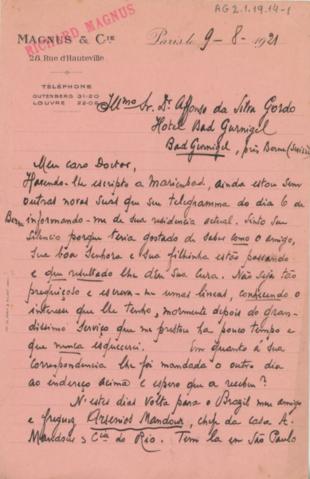 AG2.1.19.14-1
RICHARD MAGNUS
MAGNUS & Cie
28, Rue d'Hauteville
Paris le 9-8-1921
TÉLÉPHONE
GUTENBERG 31-20
LOUVRE 22-09
Illmo Sr. Dr. Affonso da Silva Gordo
Hotel Bad Gurnigel
Bad Gurnigel, près Berne (Suisse)
Meu caro Doutor,
Havendo-lhe escripto a Marienbad, ainda estou sem
outras novas Suas que seu telegramma do dia 6 de
Berna informando-me de sua residencia actual. Sinto seu
silencio porque teria gostado de saber como o amigo,
sua boa Senhora e sua filhinha estão passando
e que resultado lhe deu sua cura. Não seja tão
preguiçoso e escreva-me umas lineas, conhecendo o
interesse que lhe tenho, mormente depois do gran-
dissimo Serviço que me prestou ha pouco tempo e
que nunca esquecerei. Em quanto á sua
correspondencia lhe foi mandada o outro dia
ao indereço acima e espero que a recebeu?
N'estes dias volta para o Brazil meu amigo
e freguez Arsenios Mandour, chefe da casa A.
Mandour & Cia do Rio. Tem la em São Paulo